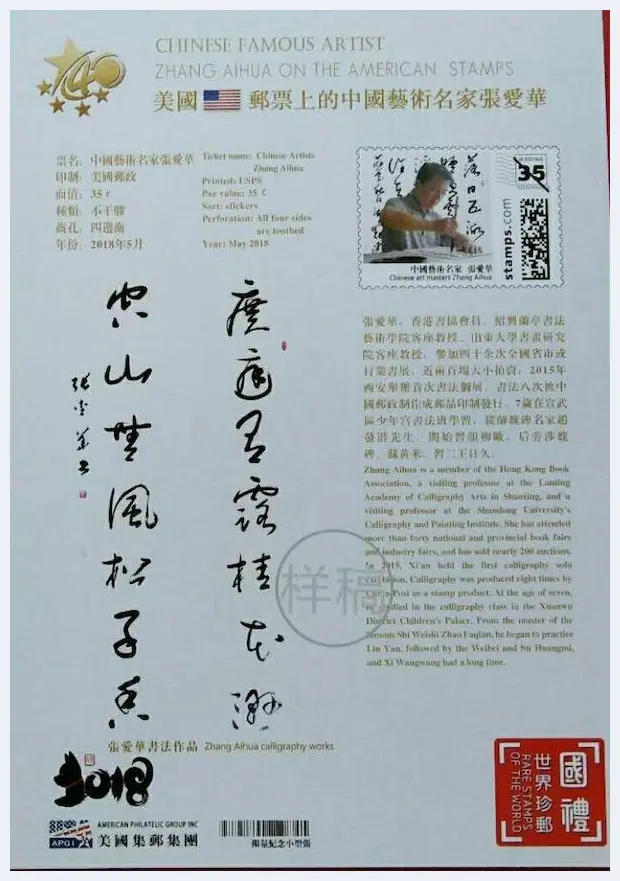 140
CHINESE FAMOUS ARTIST
ZHANG AIHUA ON THE AMERICAN STAMPS
美國 郵票上的中國藝術名家張愛華
票名：中國藝術名家張愛華
印制：美國郵政
面值：35 ¢
種類：不干膠
齒孔：四邊齒
年份：2018年5月
Ticket name: Chinese Artists
Zhang Aihua
Printed: USPS
Par value: 35 ¢
Sort: stickers
Perforation: All four sides
are toothed
Year: May 2018
US POSTAGE
35
stamps.com
中國藝術名家 張愛華
Chinese art masters Zhang Aihua
張愛華，香港書協會員、紹興蘭亭書法
藝術學院客座教授、山東大學書畫研究
院客座教授，參加四十余次全國省市或
行業書展，近兩百場大小拍賣，2015年
西安舉辦首次書法個展。書法八次被中
國郵政制作成郵品印制發行。7歲在宣武
區少年宫書法班學習，從師魏碑名家趙
發潜先生，開始習顔柳歐，后旁涉魏
碑、蘇黄米，習二王日久。
Zhang Aihua is a member of the Hong Kong Book
Association, a visiting professor at the Lanting
Academy of Calligraphy Arts in Shaoxing, and a
visiting professor at the Shandong University's
Calligraphy and Painting Institute. She has attended
more than forty national and provincial book fairs
and industry fairs, and has sold nearly 200 auctions.
In 2015, Xi'an held the first calligraphy solo
exhibition. Calligraphy was produced eight times by
Post as a stamp product. At the age of seven,
studied in the calligraphy class in the Xuanwu
District Children's Palace. From the master of the
famous Shi Weishi Zhao Faqian, he began to practice
Liu Yan, followed by the Weibei and Su Huangmi,
and Xi Wangwang had a long time.
样稿
廣庭有露桂花濕
空山無風松子香
張愛華書
張愛華書法作品 Zhang Aihua calligraphy works
2018
APGI
AMERICAN PHILATELIC GROUP INC
美國集郵集團
限量紀念小型張
國禮
世界珍郵
RARE STAMPS
OF THE WORLD